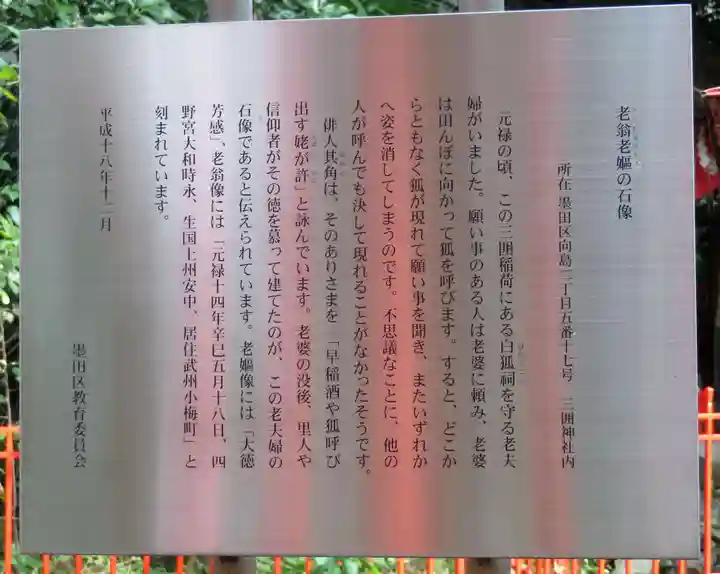 老翁老嫗の石像
所在 墨田区向島二丁目五番十七号 三囲神社内
元禄の頃、この三囲稲荷にある白狐祠を守る老夫
婦がいました。願い事のある人は老婆に頼み、老婆
は田んぼに向かって狐を呼びます。すると、どこか
らともなく狐が現れて願い事を聞き、またいずれか
へ姿を消してしまうのです。不思議なことに、他の
人が呼んでも決して現れることがなかったそうです。
俳人其角は、そのありさまを 「早稲酒や狐呼び
出す姥が許」と詠んでいます。老婆の没後、里人や
信仰者がその徳を慕って建てたのが、この老夫婦の
石像であると伝えられています。老嫗像には「大徳
芳感」、老翁像には「元禄十四年辛巳五月十八日、四
野宮大和時永、生国上州安中、居住武州小梅町」と
刻まれています。
平成十八年十二月
墨田区教育委員会